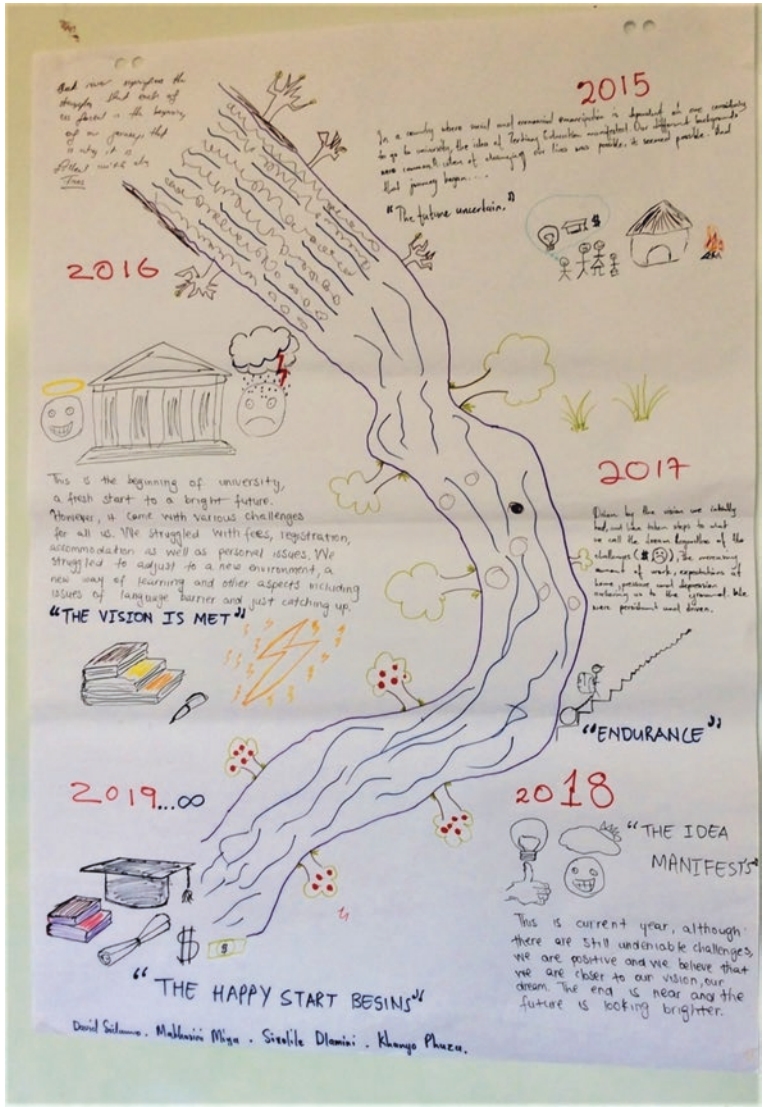 river represents the
struggles that each of
us faced in the beginning
of our journeys that
is why it is
filled with dry
Trees
2015
In a country where social and economical emancipation is dependent on one considering
to go to university, the idea of Tertiary Education manifested. Our different backgrounds
were common idea of changing our lives was possible, it seemed possible. And
that journey began....
"The future uncertain."
$
2016
This is the beginning of university,
a fresh start to a bright future.
However, it came with various challenges
for all us. We struggled with fees, registration,
accommodation as well as personal issues. We
struggled to adjust to a new environment, a
new way of learning and other aspects including
issues of language barrier and just catching up.
"THE VISION IS MET"
2017
Driven by the vision we initially
had, and have taken steps to what
we call the
challenges ($ ). The increasing
amount of work, expectations at
home, pressure and depression
us to the ground. We
were persistent and driven.
"ENDURANCE"
2018
"THE IDEA
MANIFESTS"
This is current year, although
there are still undeniable challenges,
we are positive and we believe that
we are closer to our vision, our
dream. The end is near and the
future is looking brighter.
2019...∞
$
$
"THE HAPPY START BEGINS"
David . Miya . Dlamini . Khanyo Phuza.